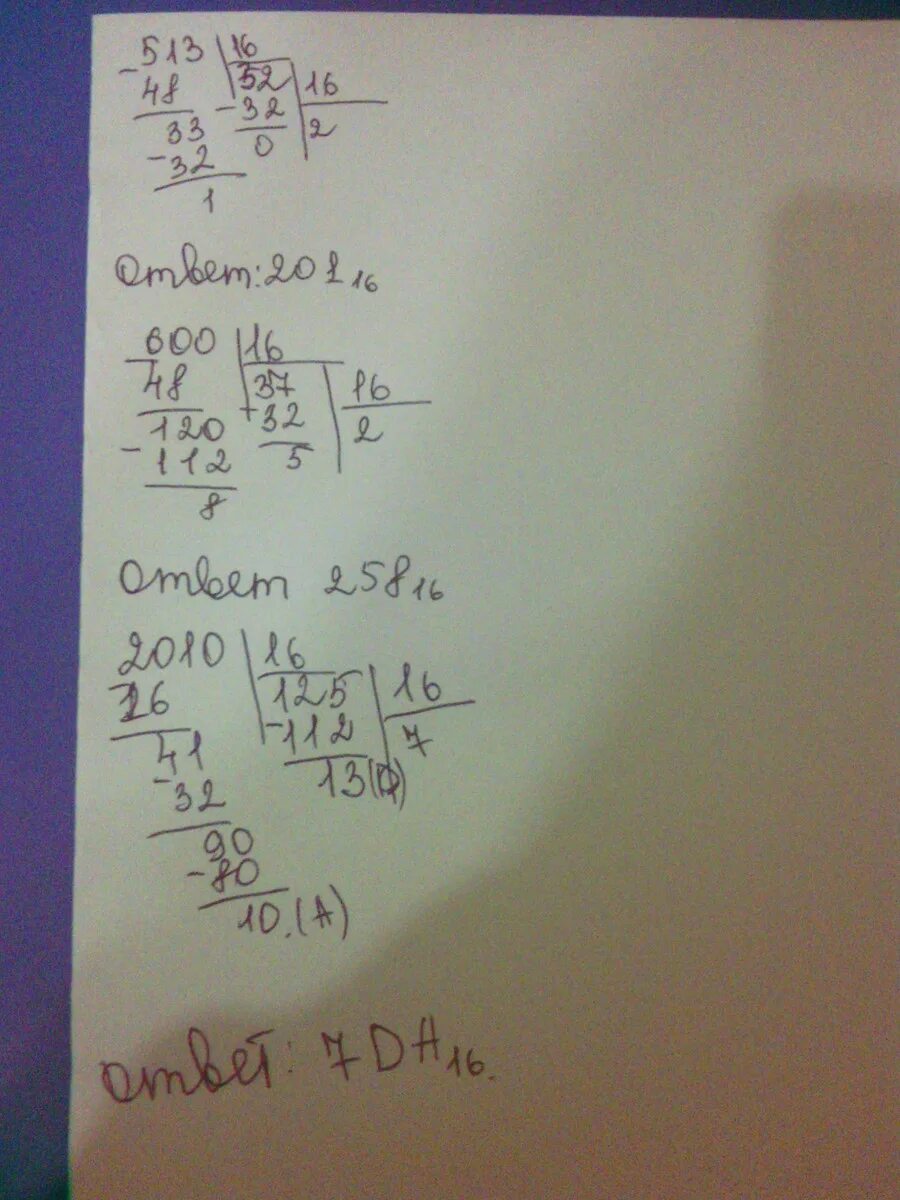 - 513 | 16
48 | 32 | 16
33 - 32 | 2
- 32 0
1
Ответ: 201₁₆
600 | 16
- 48 | 37 | 16
120 - 32 | 2
- 112 5
8
Ответ 258₁₆
2010 | 16
- 16 | 125 | 16
41 - 112 | 7
- 32 13(D)
90
- 80
10.(A)
Ответ: 7DA₁₆.